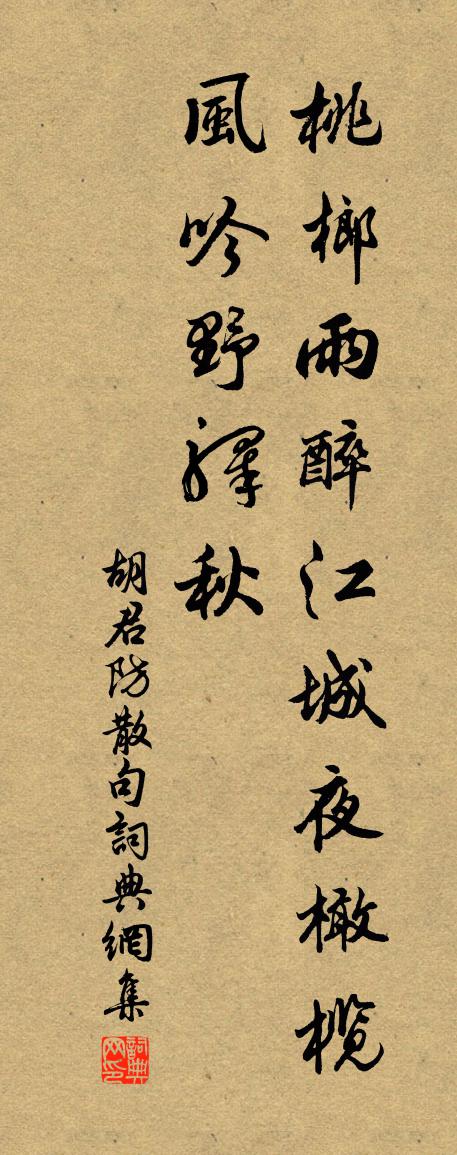 桃榔雨醉江城夜橄榄
風吟野驛秋
胡君防散句詞典網集
詞典网印